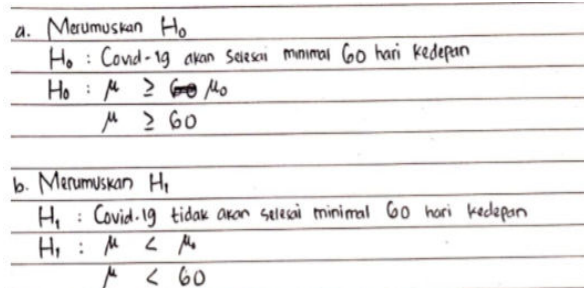 a. Merumuskan H₀
H₀ : Covid-19 akan selesai minimal 60 hari kedepan
H₀ : μ ≥ μ₀
μ ≥ 60
b. Merumuskan H₁
H₁ : Covid-19 tidak akan selesai minimal 60 hari kedepan
H₁ : μ < μ₀
μ < 60